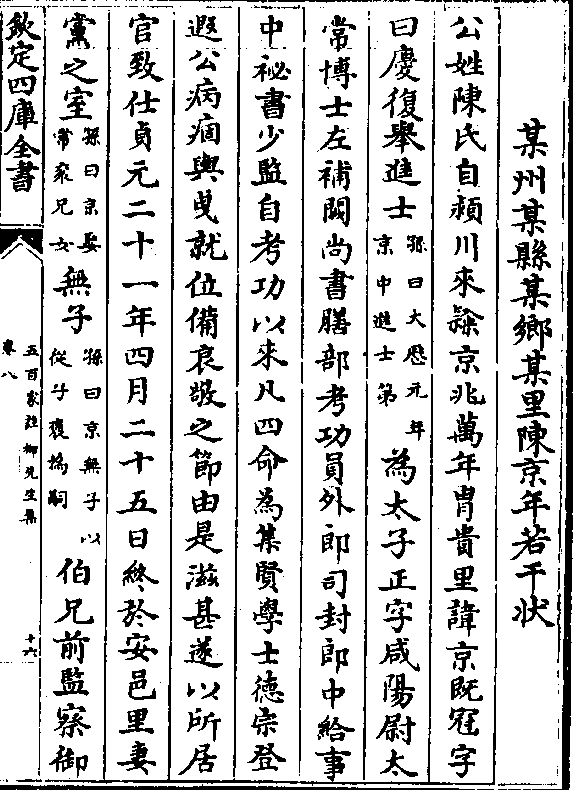 某州某縣某鄉某里陳京年若干狀
公姓陳氏自潁川來𨽻京兆萬年胄貴里諱京既冠字
曰慶復舉進士孫曰大厯元年京中進士第為太子正字咸陽尉太
常博士左補闕尚書膳部考功員外郎司封郎中給事
中祕書少監自考功以來凡四命為集賢學士德宗登
遐公病痼輿曵就位備哀敬之節由是滋甚遂以所居
官致仕貞元二十一年四月二十五日終於安邑里妻
黨之室孫曰京娶常衮兄女無子孫曰京無子以從子褒為嗣伯兄前監察御
欽定四庫全書
五百家註柳先生集
卷八
十六